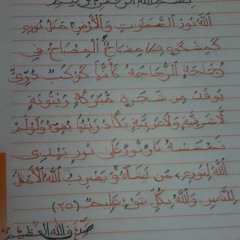 بسم الله الرحمن الرحيم
الله نور السموات والأرض مثل نوره
كمشكوة فيها مصباح المصباح في
زجاجة الزجاجة كأنها كوكب دري
يوقد من شجرة مباركة زيتونة
لا شرقية ولا غربية يكاد زيتها يضيء ولو لم
تمسسه نار نور على نور يهدي
الله لنوره من يشاء ويضرب الله الأمثال
للناس والله بكل شيء عليم (٣٥)
صدق الله العظيم